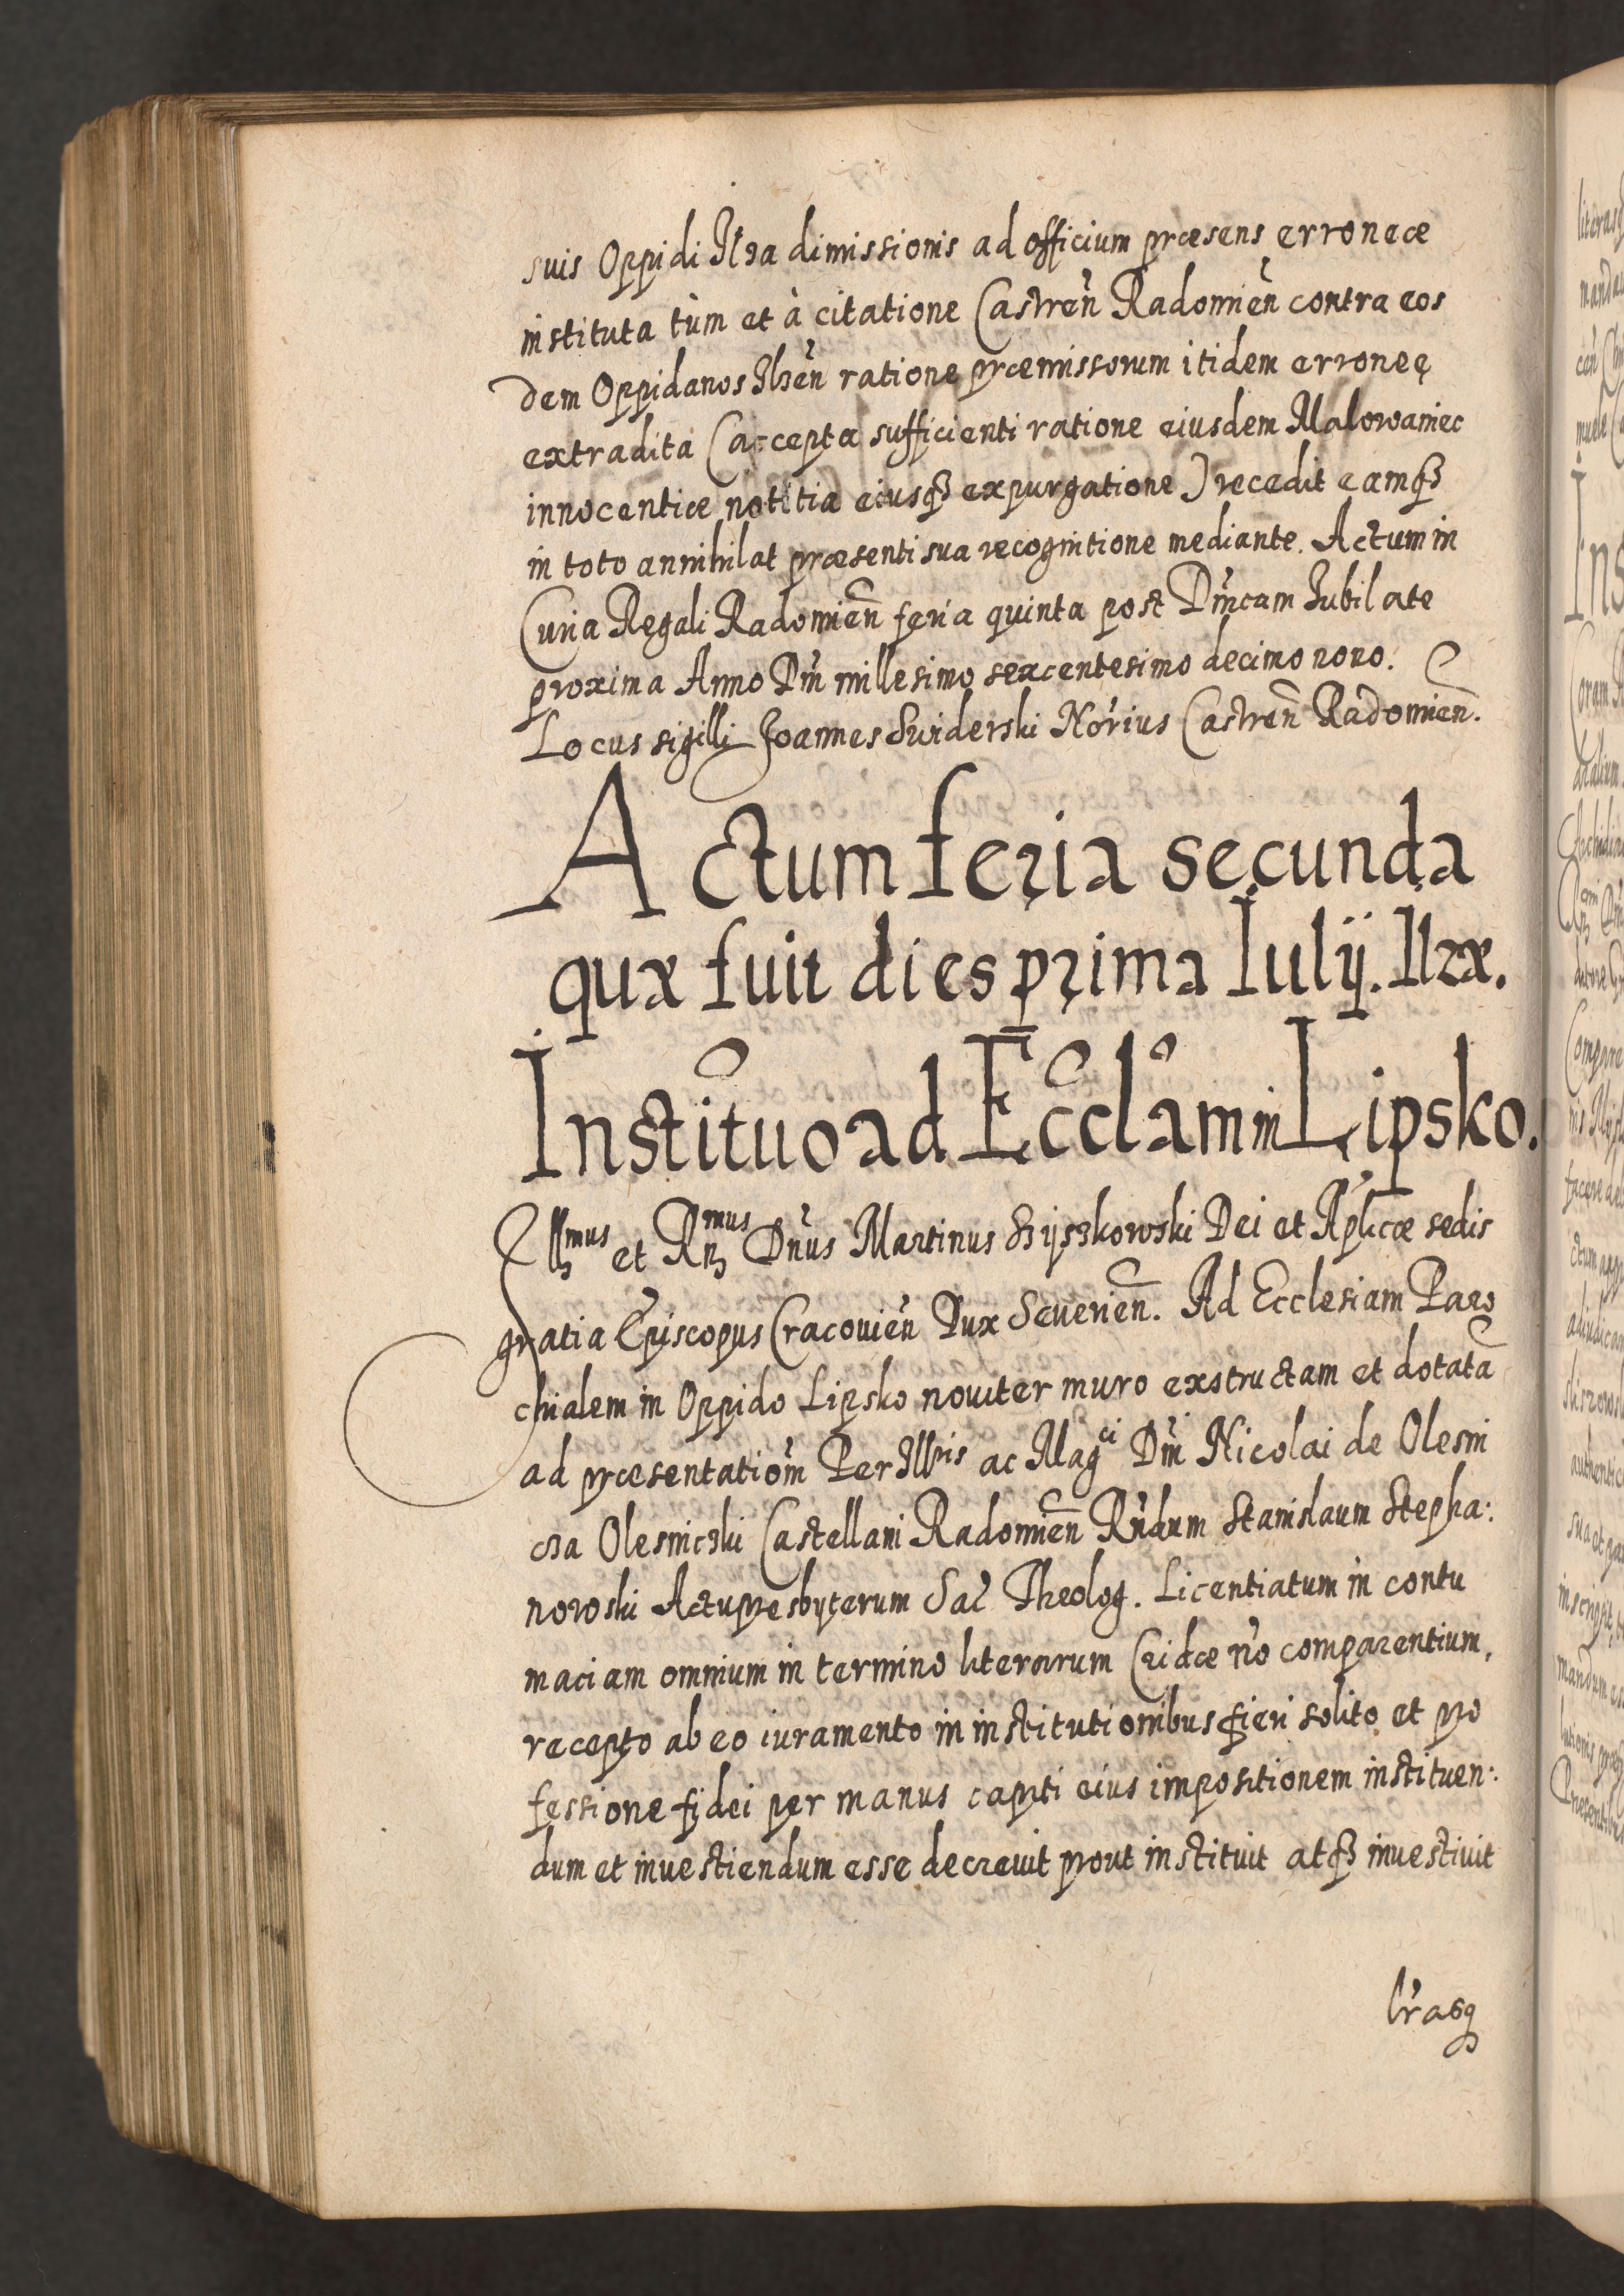 suis Oppidi Ilza dimissionis ad officium præsens erroneæ
instituta tùm et à citatione Castren̄ Radomien̄ contra eos
dem Oppidanos Ilzen̄ ratione præmissorum itidem erroneę
extradita (accepta sufficienti ratione eiusdem Malowaniec
innocentiæ notitia eiusqȝ expurgatione) recedit eamqȝ
in toto annihilat præsenti sua recognitione mediante. Actum in
Curia Regali Radomien̄ feria quinta post Dn̄icam Iubilate
proxima Anno Dn̄i millesimo sexcentesimo decimo nono.
Locus sigilli Joannes Swiderski No'rius Castren̄ Radomien̄.
Actum feria secunda
quæ fuit dies prima Iulij. Ilzæ.
Institu͠o ad Eccl͠am in Lipsko.
Illmus et Rmus Dn̄us Martinus Szyszkowski Dei et Ap'licæ sedis
gratia Episcopus Cracouien̄ Dux Seuerien̄. Ad Ecclesiam Paro
chialem in Oppido Lipsko nouiter muro exstructam et dotatā
ad præsentatiōm Per Illris ac Magci Dn̄i Nicolai de Olesni
cza Olesniczki Castellani Radomien̄ Rn̄dum Stanislaum Stepha:
nowski Actupresbyterum Sac̄ Theolog. Licentiatum in contu
maciam omnium in termino literarum Cridæ n̄o comparentium,
recepto ab eo iuramento in institutionibus fieri solito et pro
fessione fidei per manus capiti eius impositionem instituen:
dum et inuestiendum esse decreuit prout instituit atqȝ inuestiuit
lr̄asq